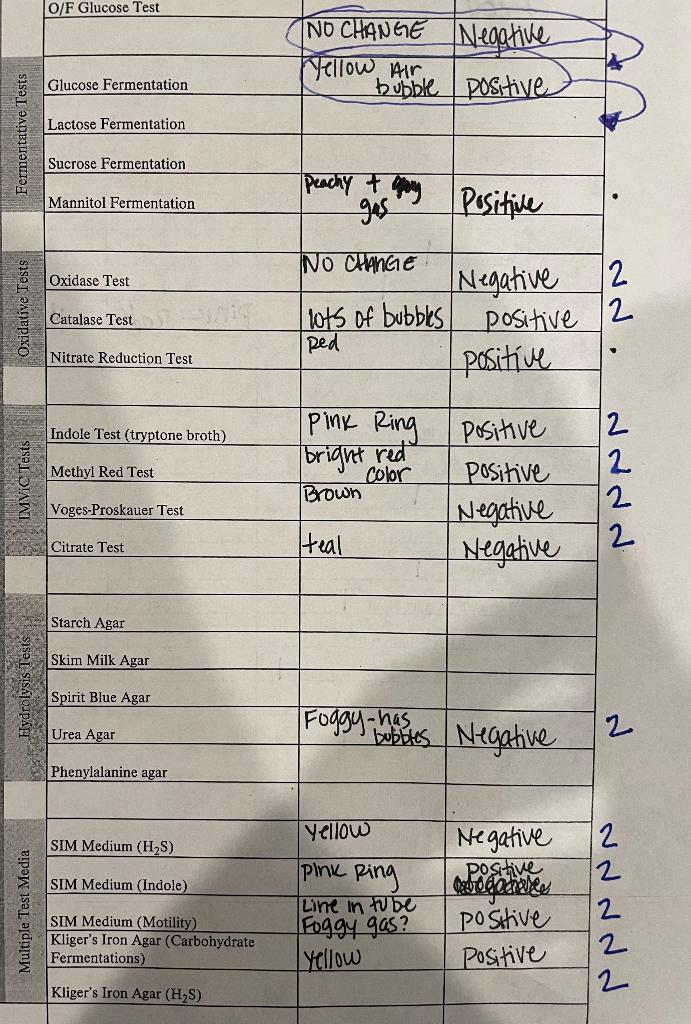 O/F Glucose Test
NO CHANGE Negative
Fermentative Tests
Yellow Air
Glucose Fermentation bubble positive
Lactose Fermentation
Sucrose Fermentation
Peachy +
Mannitol Fermentation gas Positive
Oxidative Tests
NO CHANGE
Oxidase Test Negative 2
Catalase Test lots of bubbles positive 2
Red
Nitrate Reduction Test positive
IMViC Tests
Indole Test (tryptone broth) Pink Ring positive 2
bright red
Methyl Red Test color positive 2
Brown
Voges-Proskauer Test Negative 2
Citrate Test teal Negative 2
Hydrolysis Tests
Starch Agar
Skim Milk Agar
Spirit Blue Agar
Foggy-has
Urea Agar bubbles Negative 2
Phenylalanine agar
Multiple Test Media
SIM Medium (H₂S) Yellow Negative 2
SIM Medium (Indole) Pink Ring positive 2
Line in tube
SIM Medium (Motility) Foggy gas? positive 2
Kliger's Iron Agar (Carbohydrate
Fermentations) Yellow Positive 2
Kliger's Iron Agar (H₂S) 2